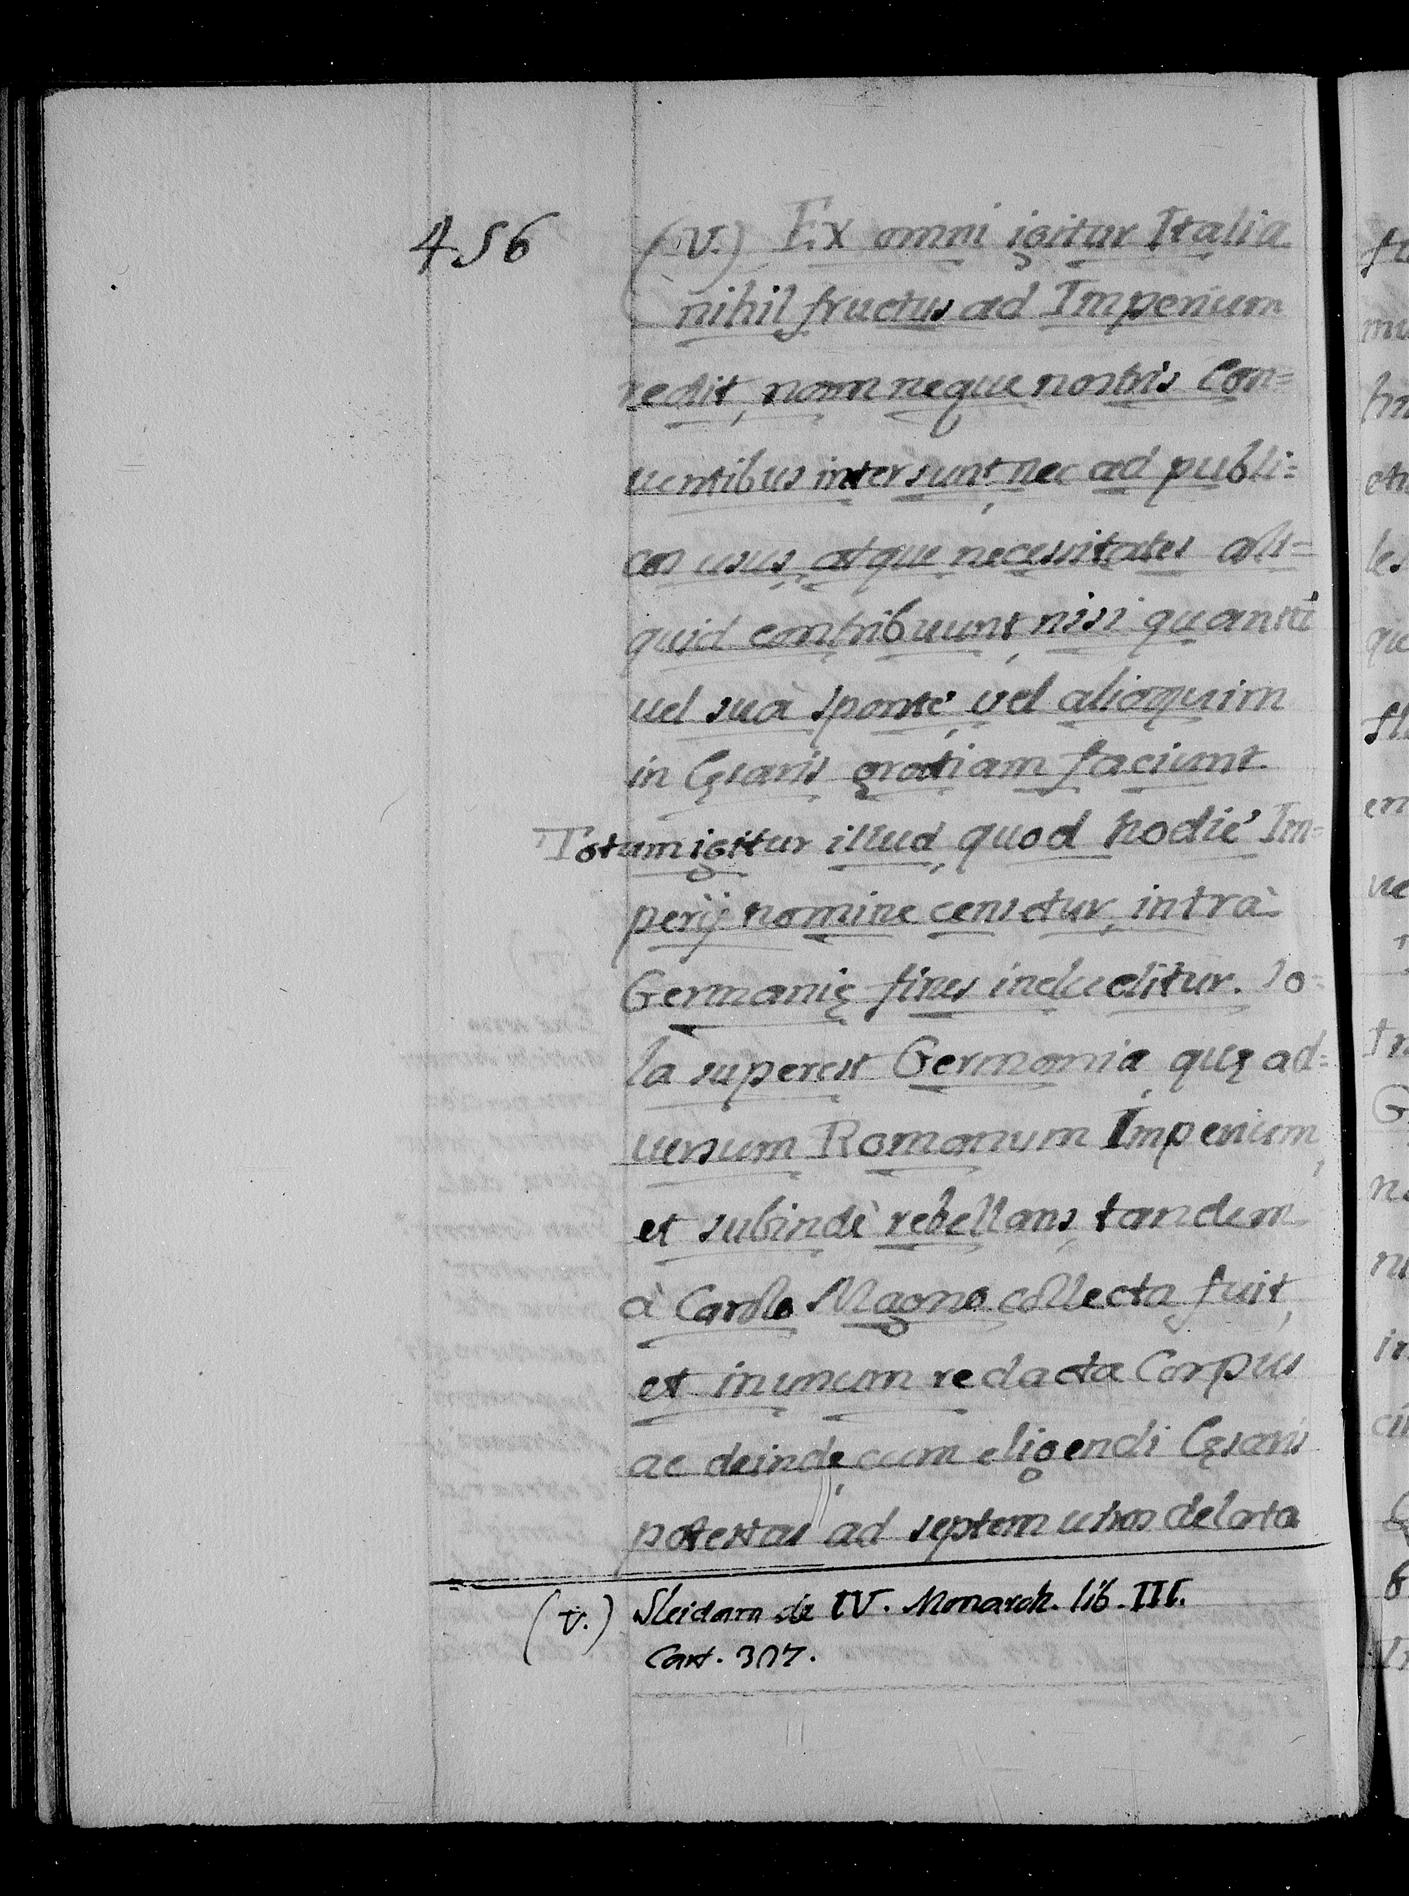 456
(V.) Ex omni igitur Italia
nihil fructus ad Imperium
redit, nam neque nostris Con=
uentibus intersunt, nec ad publi=
cos usus, atque necessitates ali=
quid contribuunt, nisi quantũ
uel sua sponte', vel alioquim
in Cęsaris gratiam faciunt.
Totum igitur illud, quod hodie' Im=
perij nomine censetur, intrà
Germanię fines includitur. So=
la superest Germania, quę ad=
uersum Romanum Imperium,
et subindè rebellans, tandem
à Carolo Magno collecta fuit,
et in unum redacta Corpus
ac deinde, cum eligendi Cęsaris
potestas ad septem uiros delata
(V.) Sleidam de IV. Monarch. lib. III.
Cart. 307.